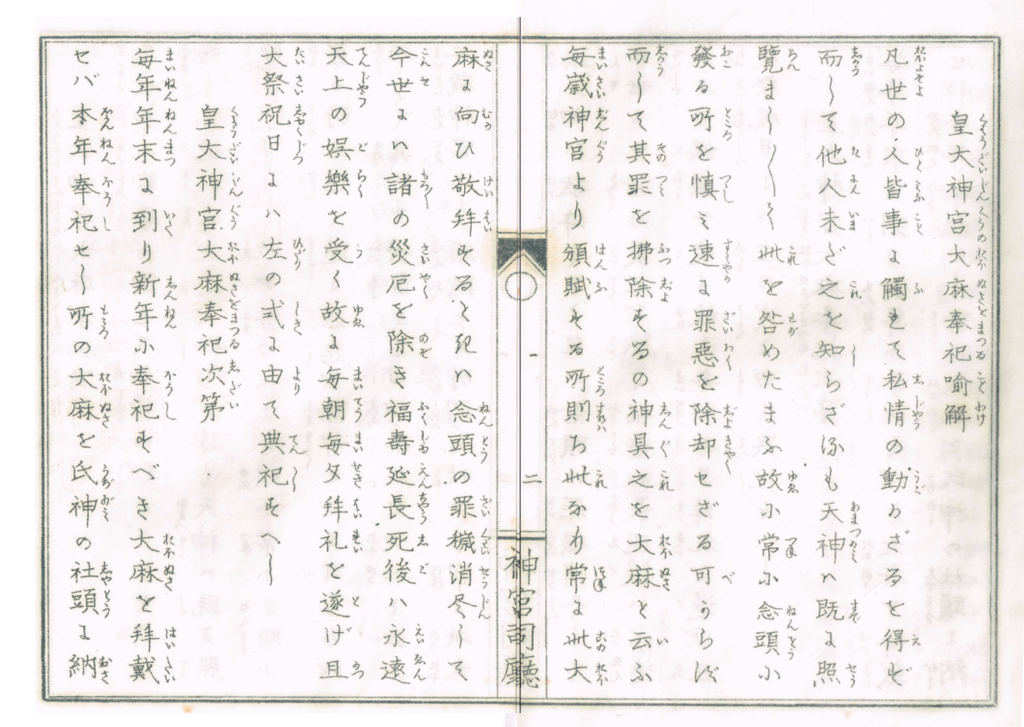 皇大神宮大麻奉祀喩解
凡世の人皆事に觸れて私情の動かざるを得ず
而して他未だ之を知らざるも天神ハ既に照
覽まし〳〵此を咎めたまふ故に常に念頭に
發る所を愼み速に罪惡を除却せざる可からず
而して其罪を拂除するの神具之を大麻と云ふ
毎歲神宮より頒賦する所則ち此なり常に此大
一
二
神宮司廳
麻に向ひ敬拜するときハ念頭の罪穢消尽して
今世にハ諸の災厄を除き福壽延長死後ハ永遠
天上の娯樂を受く故に毎朝毎夕拜礼を遂げ且
大祭祝日にハ左の式に由て典祀すへし
皇大神宮大麻奉祀次第
毎年年末に到り新年に奉祀すべき大麻を拜戴
セバ本年奉祀せし所の大麻を氏神の社頭に納